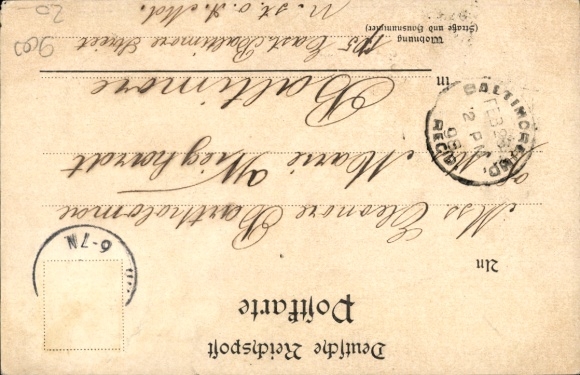 Deutsche Reichspost
Postkarte
An
Miss Eleonore Bartholomae
Marie Wieghardt
in
Baltimore
Wohnung
(Straße und Hausnummer)
East Baltimore Street
N. St. o. A. Md.
6-7N.
BALTIMORE, MD.
FEB
2 PM
98
REC'D